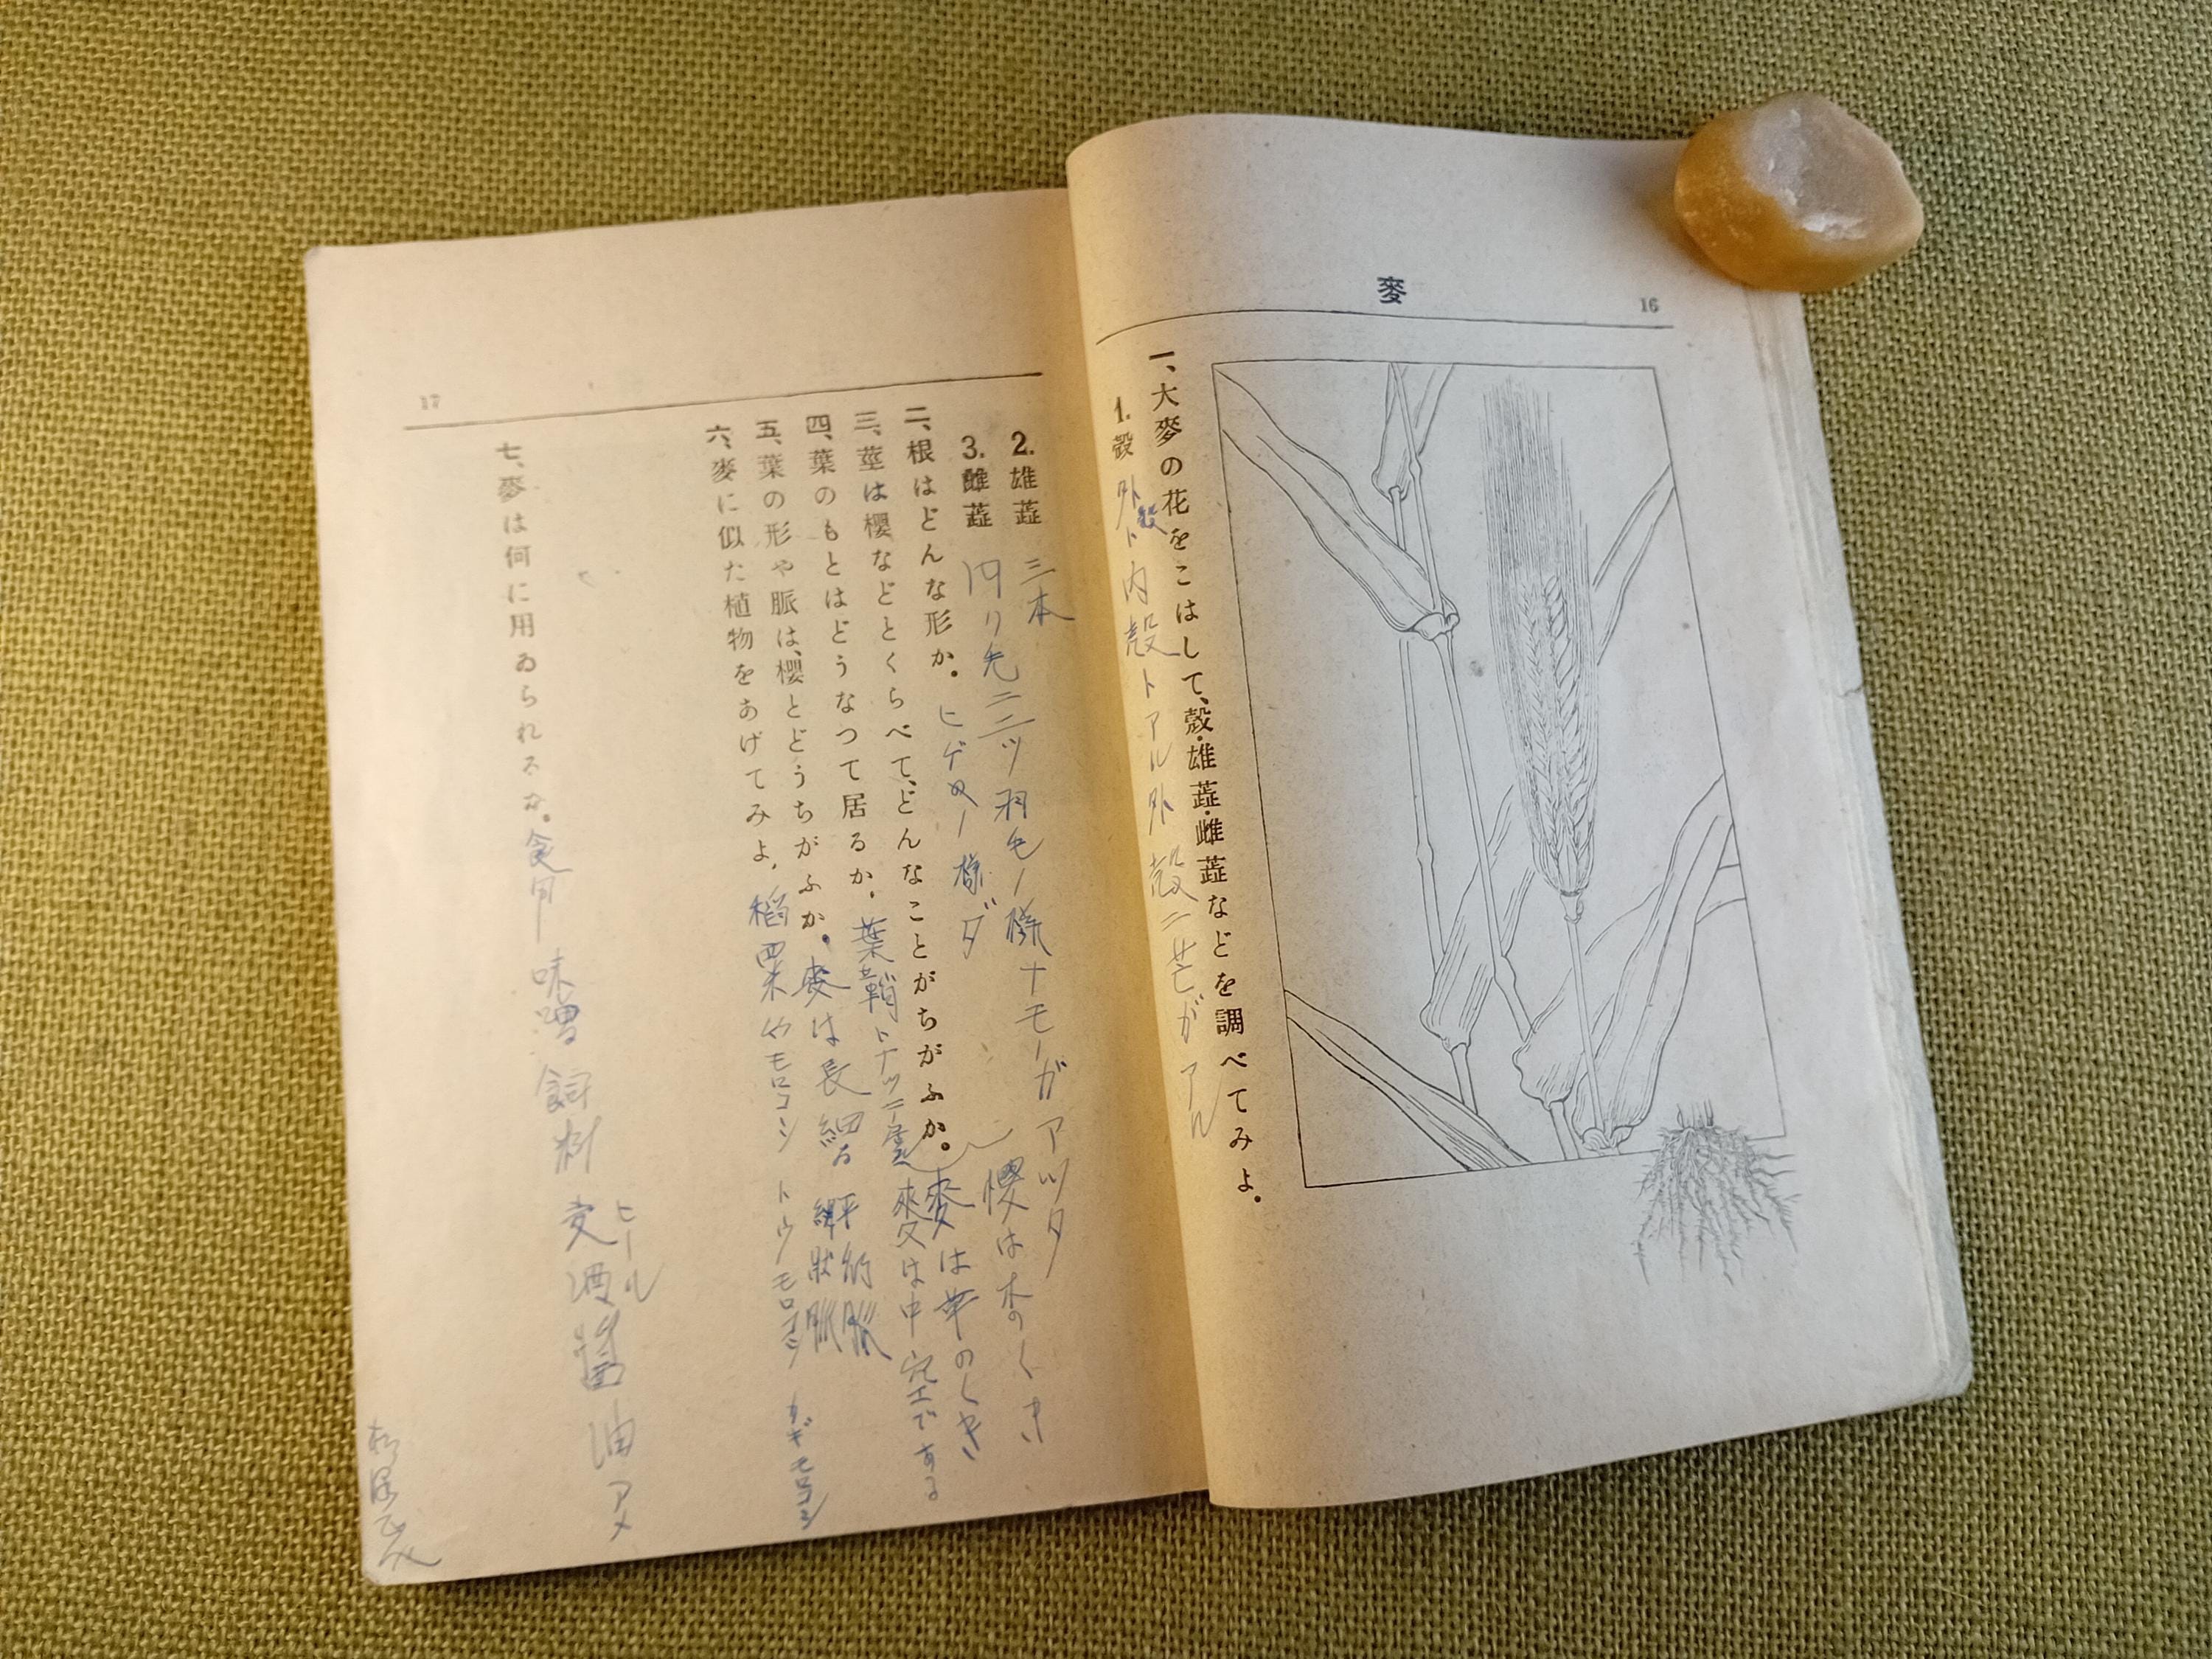 麥
16
一、大麥の花をこはして、殼・雄蕋・雌蕋などを調べてみよ。
1. 殼 外殼ト内殻トアル外殻ニ芒がアル
17
2. 雄蕋 三本
3. 雌蕋 円り先ニ二ツ羽毛ノ様ナモノガアツタ
二、根はどんな形か。ヒゲノ様ダ
三、莖は櫻などとくらべて、どんなことがちがふか。
櫻は木のくき
麥は草のくき
麥は中空である
四、葉のもとはどうなつて居るか。葉鞘トナツ
五、葉の形や脈は、櫻とどうちがふか。麥は長細 平行脈
網狀脈
六、麥に似た植物をあげてみよ。稻 粟 竹 モロコシ トウモロコシ
七、麥は何に用ゐられるか。食用 味噌 飼料 麦酒 醤油 アメ
ビール